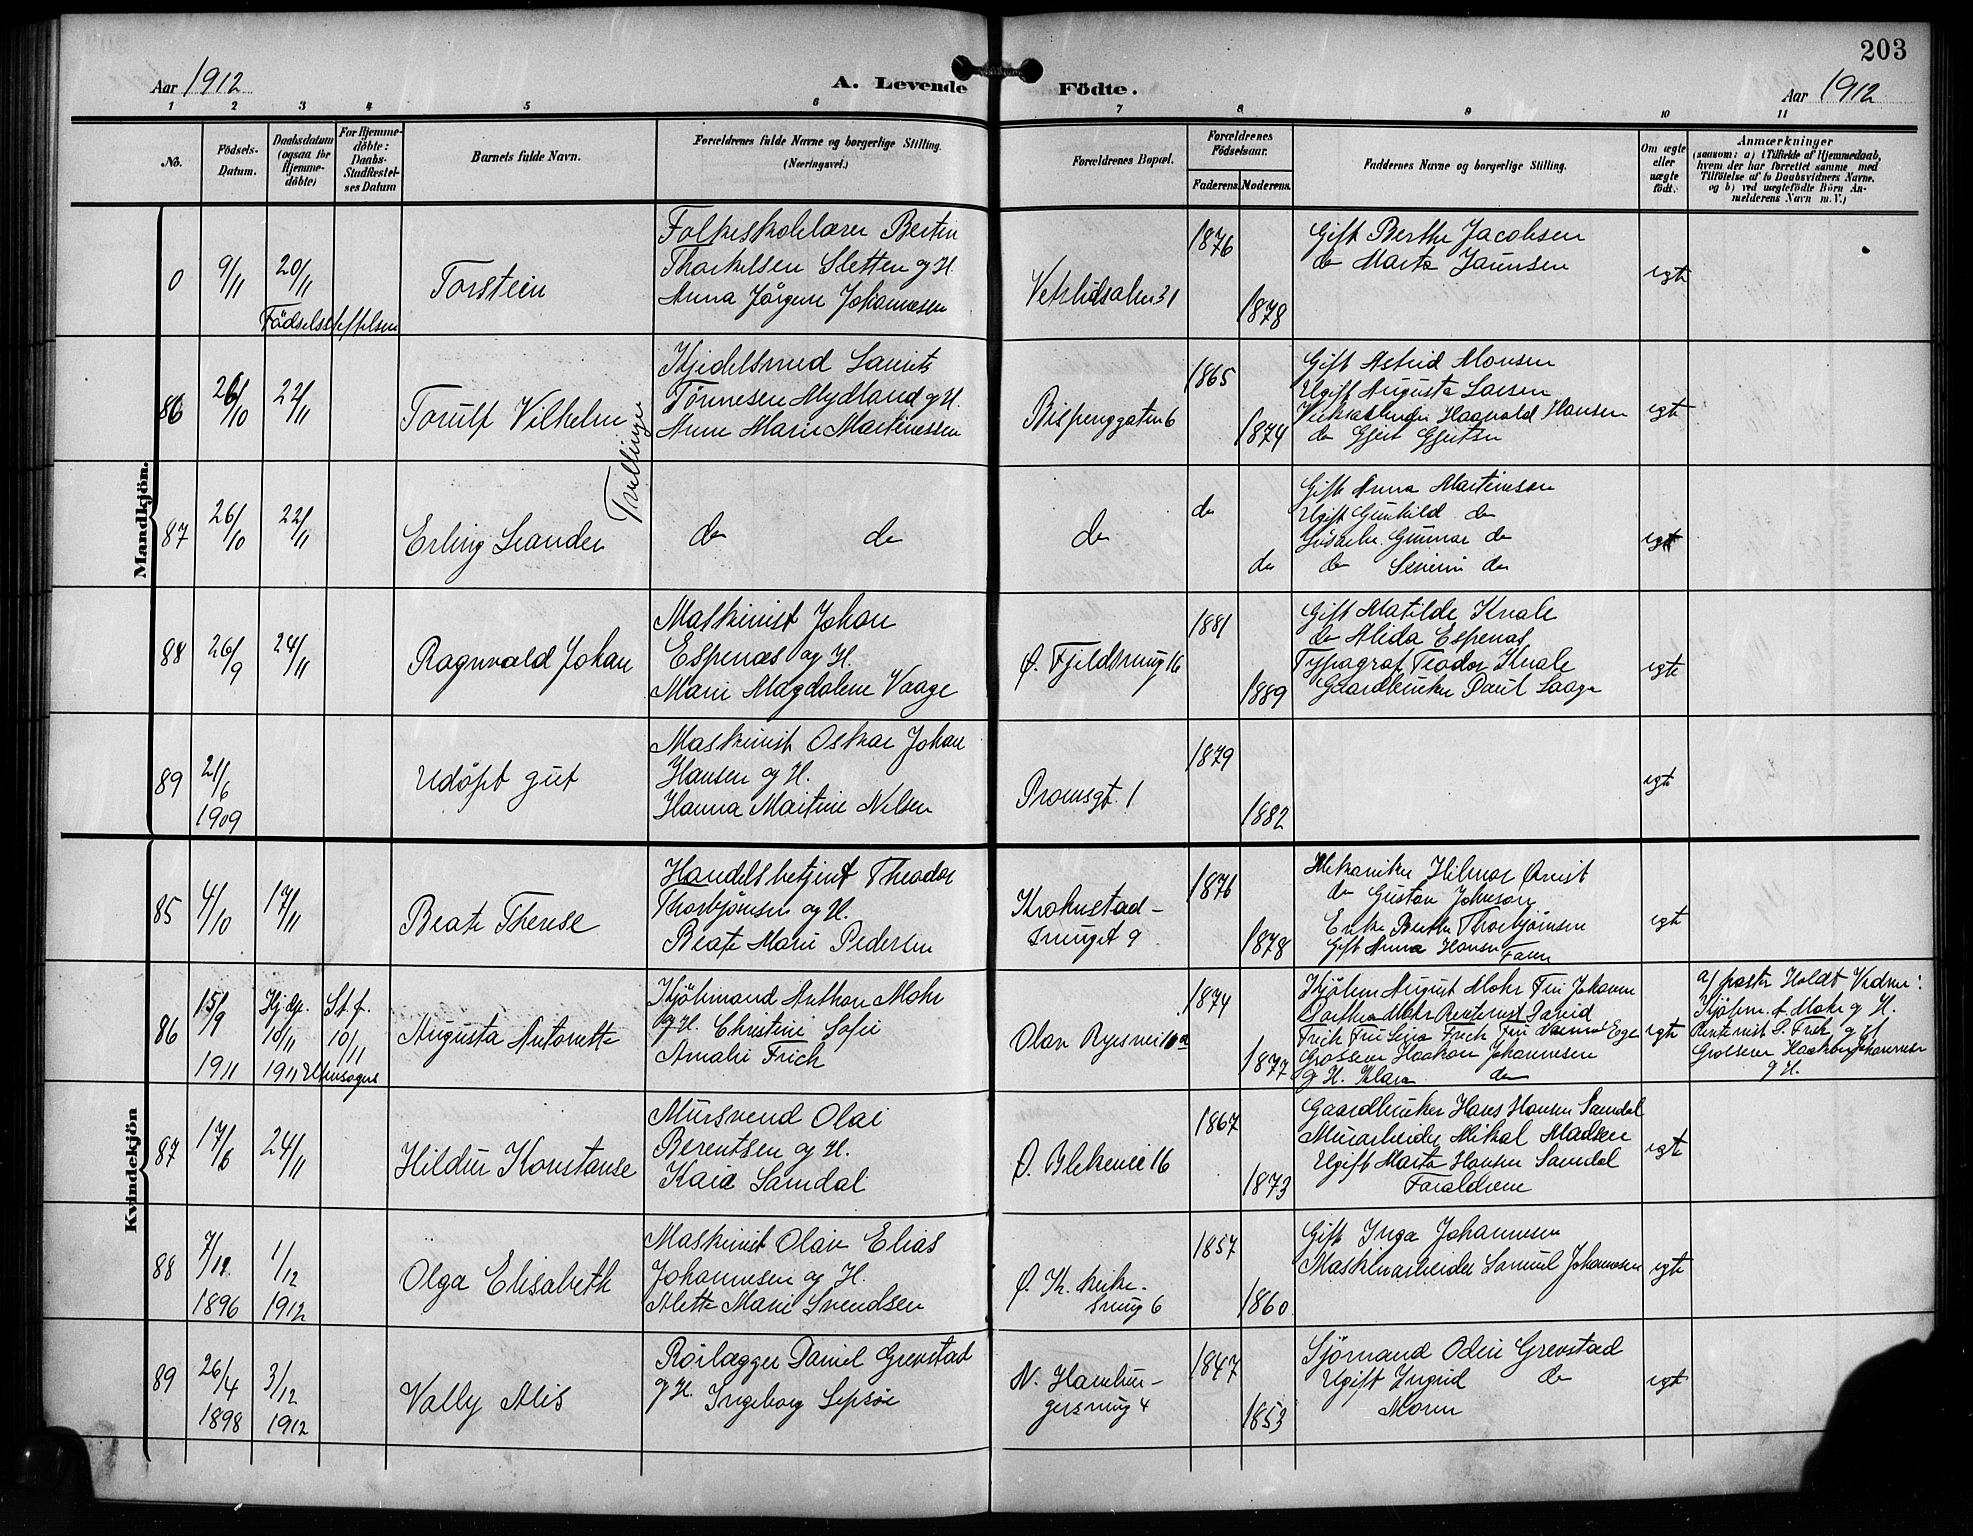 203
Aar 1912
A. Levende Fødte.
Aar 1912
1 2 3 4 5 6 7 8 9 10 11
No.
Födsels-
Datum.
Daabsdatum
(ogsaa for
Hjemme-
döbte)
For Hjemme-
döbte:
Daabs-
Stadfæstel-
ses Datum
Barnets fulde Navn.
Forældrenes fulde Navne og borgerlige Stilling.
(Næringsvei.)
Forældrenes Bopæl.
Forældrenes
Födselsaar.
Faderens. Moderens.
Faddernes Navne og borgerlige Stilling.
Om ægte
eller
uægte
født.
Anmærkninger
(saasom: a) i Tilfælde af Hjemmedaab,
hvem der har forrettet samme med
Tilföielse af to Daabsvidners Navne,
og b) ved uægtefödte Börn An-
melderens Navn m.V.)
Mandkjön.
0 9/11 20/11
Torstein
Folkeskolelærer Bertin
Thorkelsen Sletten og H.
Anna Jörgine Johannesen
Vetrlidsalm 31
1876
1878
Gift Berthe Jacobsen
do Marta
egte
86 26/10 22/11
Torulf Vilhelm
Tvillinger
Kjedelsmed Lauritz
Tönnesen Mydland og H.
Anne Marie Martinessen
Bispenggaten 6
1865
1874
Gift Astrid Monsen
Ugift Augusta Larsen
Haavald Hansen
do Gjert Gjertsen
egte
87 26/10 22/11
Erling Leander
do do
do
do
do
Gift Anna Martinesen
Ugift Gunhild do
Gunnar do
do Severin do
egte
88 26/9 24/11
Ragnvald Johan
Maskinist Johan
Espenæs og H.
Marie Magdalene Vaage
Ø. Fjeldsmug 16
1881
1889
Gift Matilde Kvale
do Alida Espenæs
Typograf Teodor Kvale
Gaardbruker Paul
egte
89 21/6
1909
Udöpt gut
Maskinist Oskar Johan
Hansen og H.
Hanna Martine Nilsen
Promsgt. 1
1879
1882
egte
Kvindekjön
85 4/10 17/11
Beate Therese
Handelsbetjent Theodor
Thorbjörnsen og H.
Beate Marie Pedersen
Krohnstad-
smuget 9
1876
1878
Mekaniker Hilmar Qvist
do Gustav Johnson
Enke Berthe Thorbjörnsen
Gift Anna Hansen Faren
egte
86 15/9
1911
Hj.dp.
10/11
1911
St.f.
10/11
Augusta Antonette
Kjöbmand Anthon Mohr
og H. Christine Sofie
Amalie Frich
Olav Ryesvei 10a
1874
1877
Kjöbm August Mohr Fru Johanne
Dorthea Mohr Rentenist David
Frich Fru Frich Fru Egge
Grosserer Haakon Johannesen
og H. Klara do
egte
a/ pastor Holdt Vidner:
Kjöbm. A Mohr og H.
Rentenist D. Frich og H
Grosserer Haakon Johannesen
og H.
87 17/6 24/11
Hildur Konstanse
Mursvend Olai
Berentsen og H.
Kaia Samdal
Ø. Blekevei 16
1867
1873
Gaardbruker Hans Hansen Samdal
Murarbeider Mikal Madsen
Ugift Marta Hansen Samdal
Forældrene
egte
88 7/12
1896
1/12
1912
Olga Elisabeth
Maskinist Olav Elias
Johannesen og H.
Alette Marie Svendsen
smug 6
1857
1860
Gift Inga Johannesen
Maskinarbeider Samuel Johannesen
egte
89 26/4
1898
3/12
1912
Vally Alis
Rörlægger Daniel Grevstad
og H. Ingeborg Sepsöe
N. Hambur-
gersmug 4
1847
1853
Sjömand Odin Grevstad
Ugift Ingrid do
Moren
egte